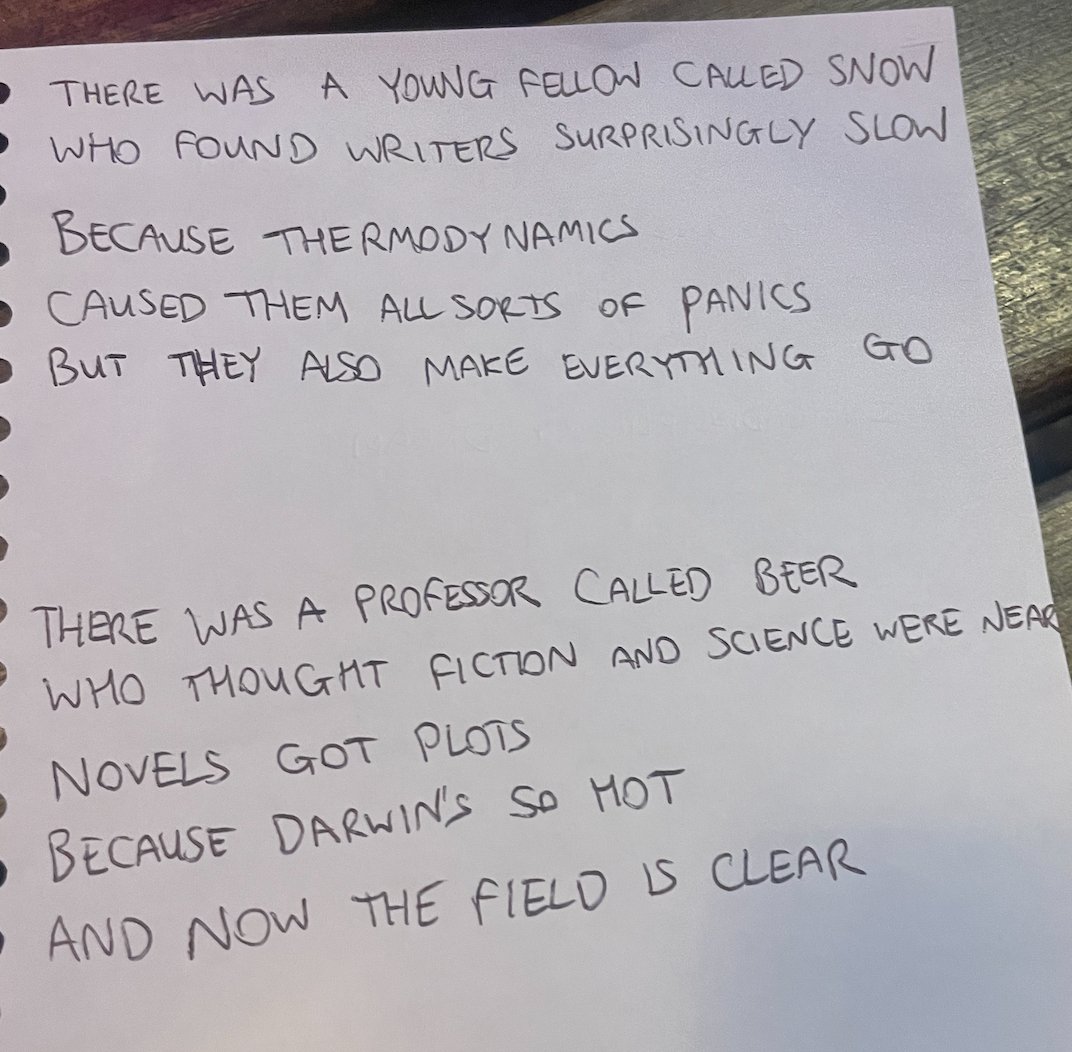 THERE WAS A YOUNG FELLOW CALLED SNOW
WHO FOUND WRITERS SURPRISINGLY SLOW
BECAUSE THERMODYNAMICS
CAUSED THEM ALL SORTS OF PANICS
BUT THEY ALSO MAKE EVERYTHING GO
THERE WAS A PROFESSOR CALLED BEER
WHO THOUGHT FICTION AND SCIENCE WERE NEAR
NOVELS GOT PLOTS
BECAUSE DARWIN'S SO HOT
AND NOW THE FIELD IS CLEAR